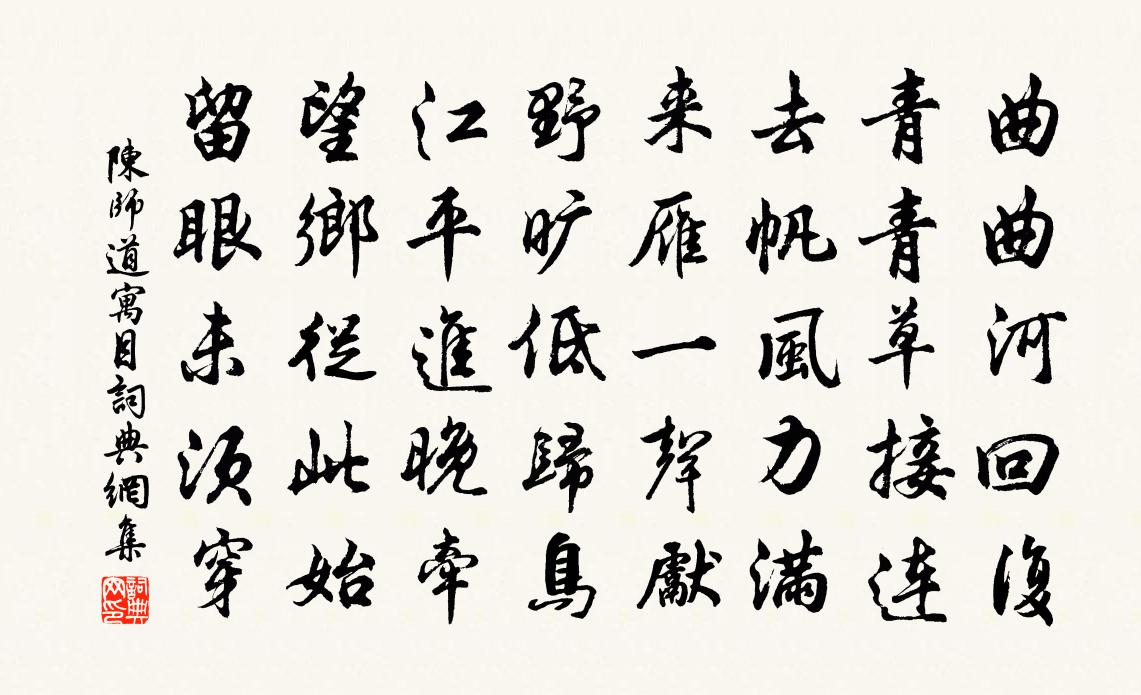 曲曲河回復
青青草接連
去帆風力滿
来雁一聲獻
野旷低歸鳥
江平進晚牽
望鄉從此始
留眼未須穿
陳師道寓目詞典網集
詞典网印